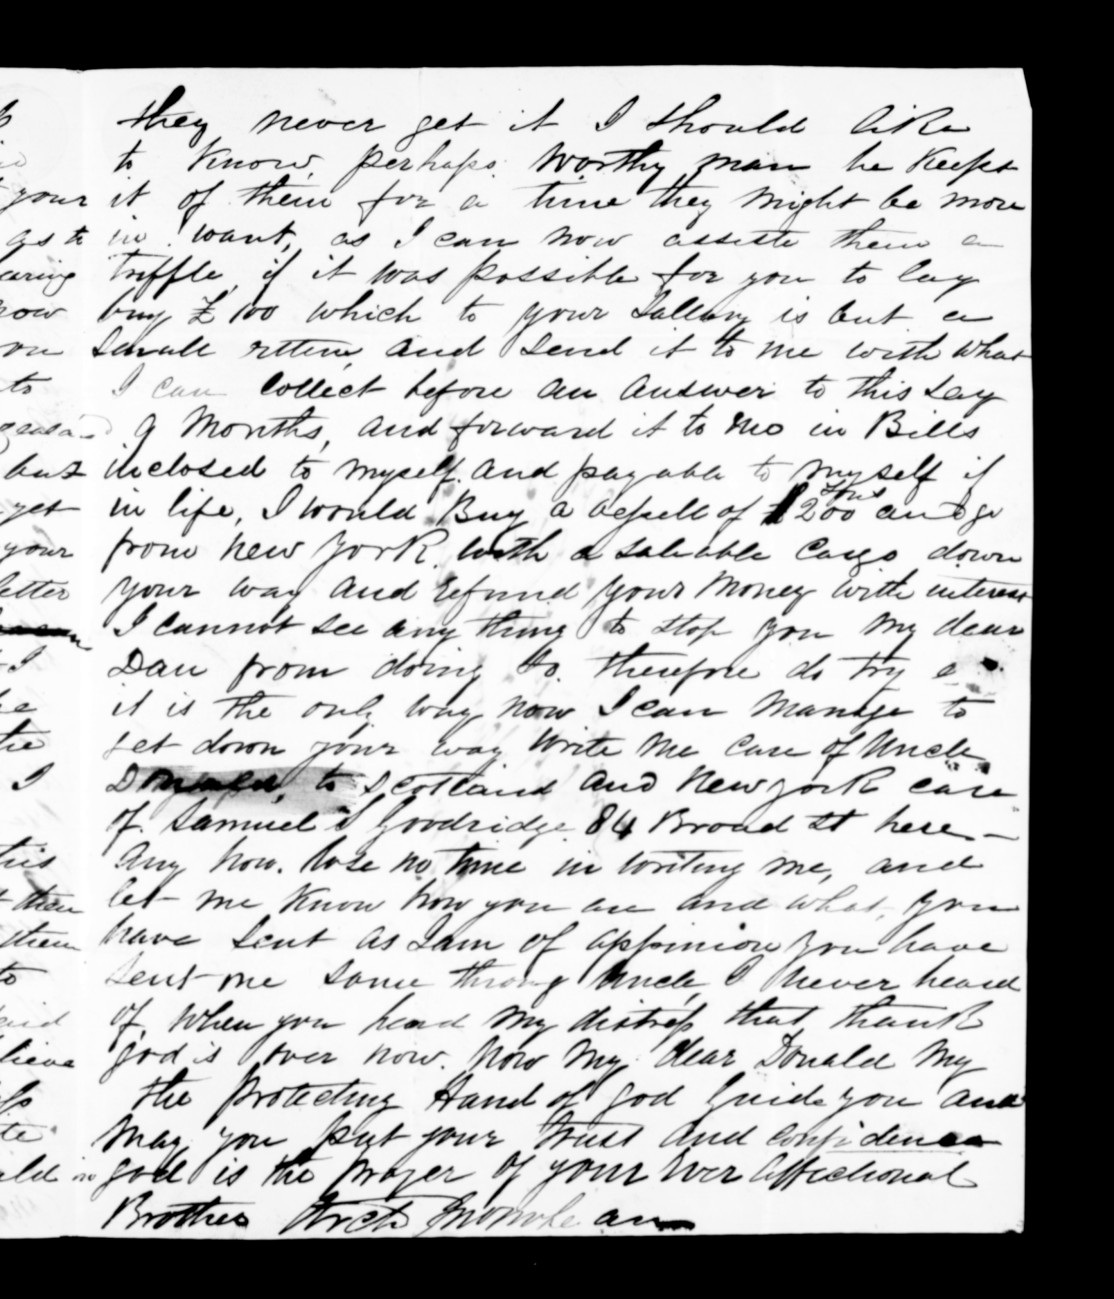 they never get it I should like
to know, perhaps worthy man he keeps
it of them for a time they might be more
in want, as I can now assiste them a
triffle, if it was possible for you to lay
buy £100 which to your Sallary is but a
Small and send it to me with what
I can collect before an answer to this say
9 Months, and forward it to me in Bills
inclosed to myself and payable to myself if
in life, I would Buy a vessell of 200 tons and go
from New York with a saleable cargo down
your way and refund your money with interest
I cannot see any thing to stop you My dear
Dan from doing so. therefore do try
it is the only way now I can manage to
get down your way write me care of Uncle
Donald, to Scotland and New york care
of Samuel Goodridge 84 Broad St here —
Any how. lose no time in writing me, and
let me know how you are and what you
have sent as I am of oppinion you have
sent me some throug Uncle, I never heard
of, when you heard my distress that thank
god is over now. now My dear Donald My
the protecting Hand of god Guide you and
May you put your trust and confidence
god is the prayer of your ever affectionat
Brother Arch
your
as to
now
to
but
yet
your
letter
I
the
I
this
them
them
to